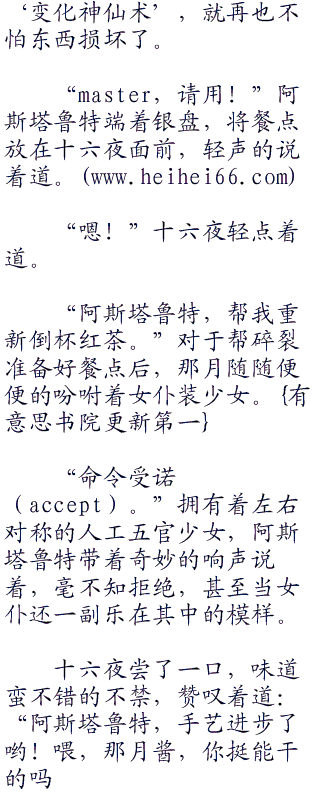 ‘变化神仙术’，就再也不
怕东西损坏了。
“master，请用！”阿
斯塔鲁特端着银盘，将餐点
放在十六夜面前，轻声的说
着道。(www.heihei66.com)
“嗯！”十六夜轻点着
道。
“阿斯塔鲁特，帮我重
新倒杯红茶。”对于帮碎裂
准备好餐点后，那月随随便
便的吩咐着女仆装少女。{有
意思书院更新第一}
“命令受诺
（accept）。”拥有着左右
对称的人工五官少女，阿斯
塔鲁特带着奇妙的响声说
着，毫不知拒绝，甚至当女
仆还一副乐在其中的模样。
十六夜尝了一口，味道
蛮不错的不禁，赞叹着道：
“阿斯塔鲁特，手艺进步了
哟！喂，那月酱，你挺能干
的吗